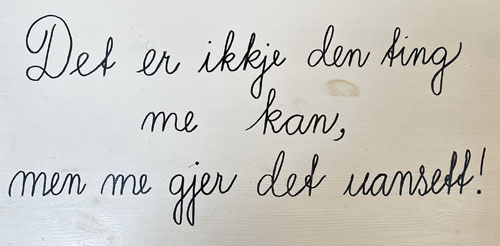 Det er ikkje den ting
me kan,
men me gjer det uansett!